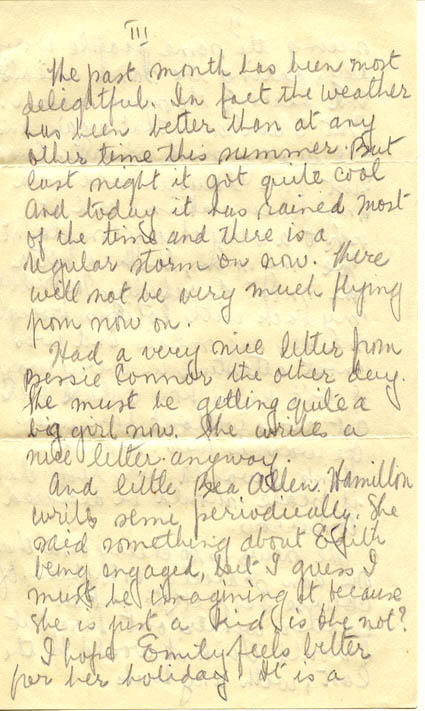 III
The past month has been most
delightful. In fact the weather
has been better than at any
other time this summer. But
last night it got quite cool
And today it has rained most
of the time and there is a
regular storm on now. There
will not be very much flying
from now on.
Had a very nice letter from
Bessie Connor the other day.
She must be getting quite a
big girl now. She writes a
nice letter anyway.
And little Bea Allen Hamilton
writes semi periodically. She
said something about Edith
being engaged, but I guess I
must be imagining it because
she is just a kid is she not?
I hope Emily feels better
for her holiday. It is a